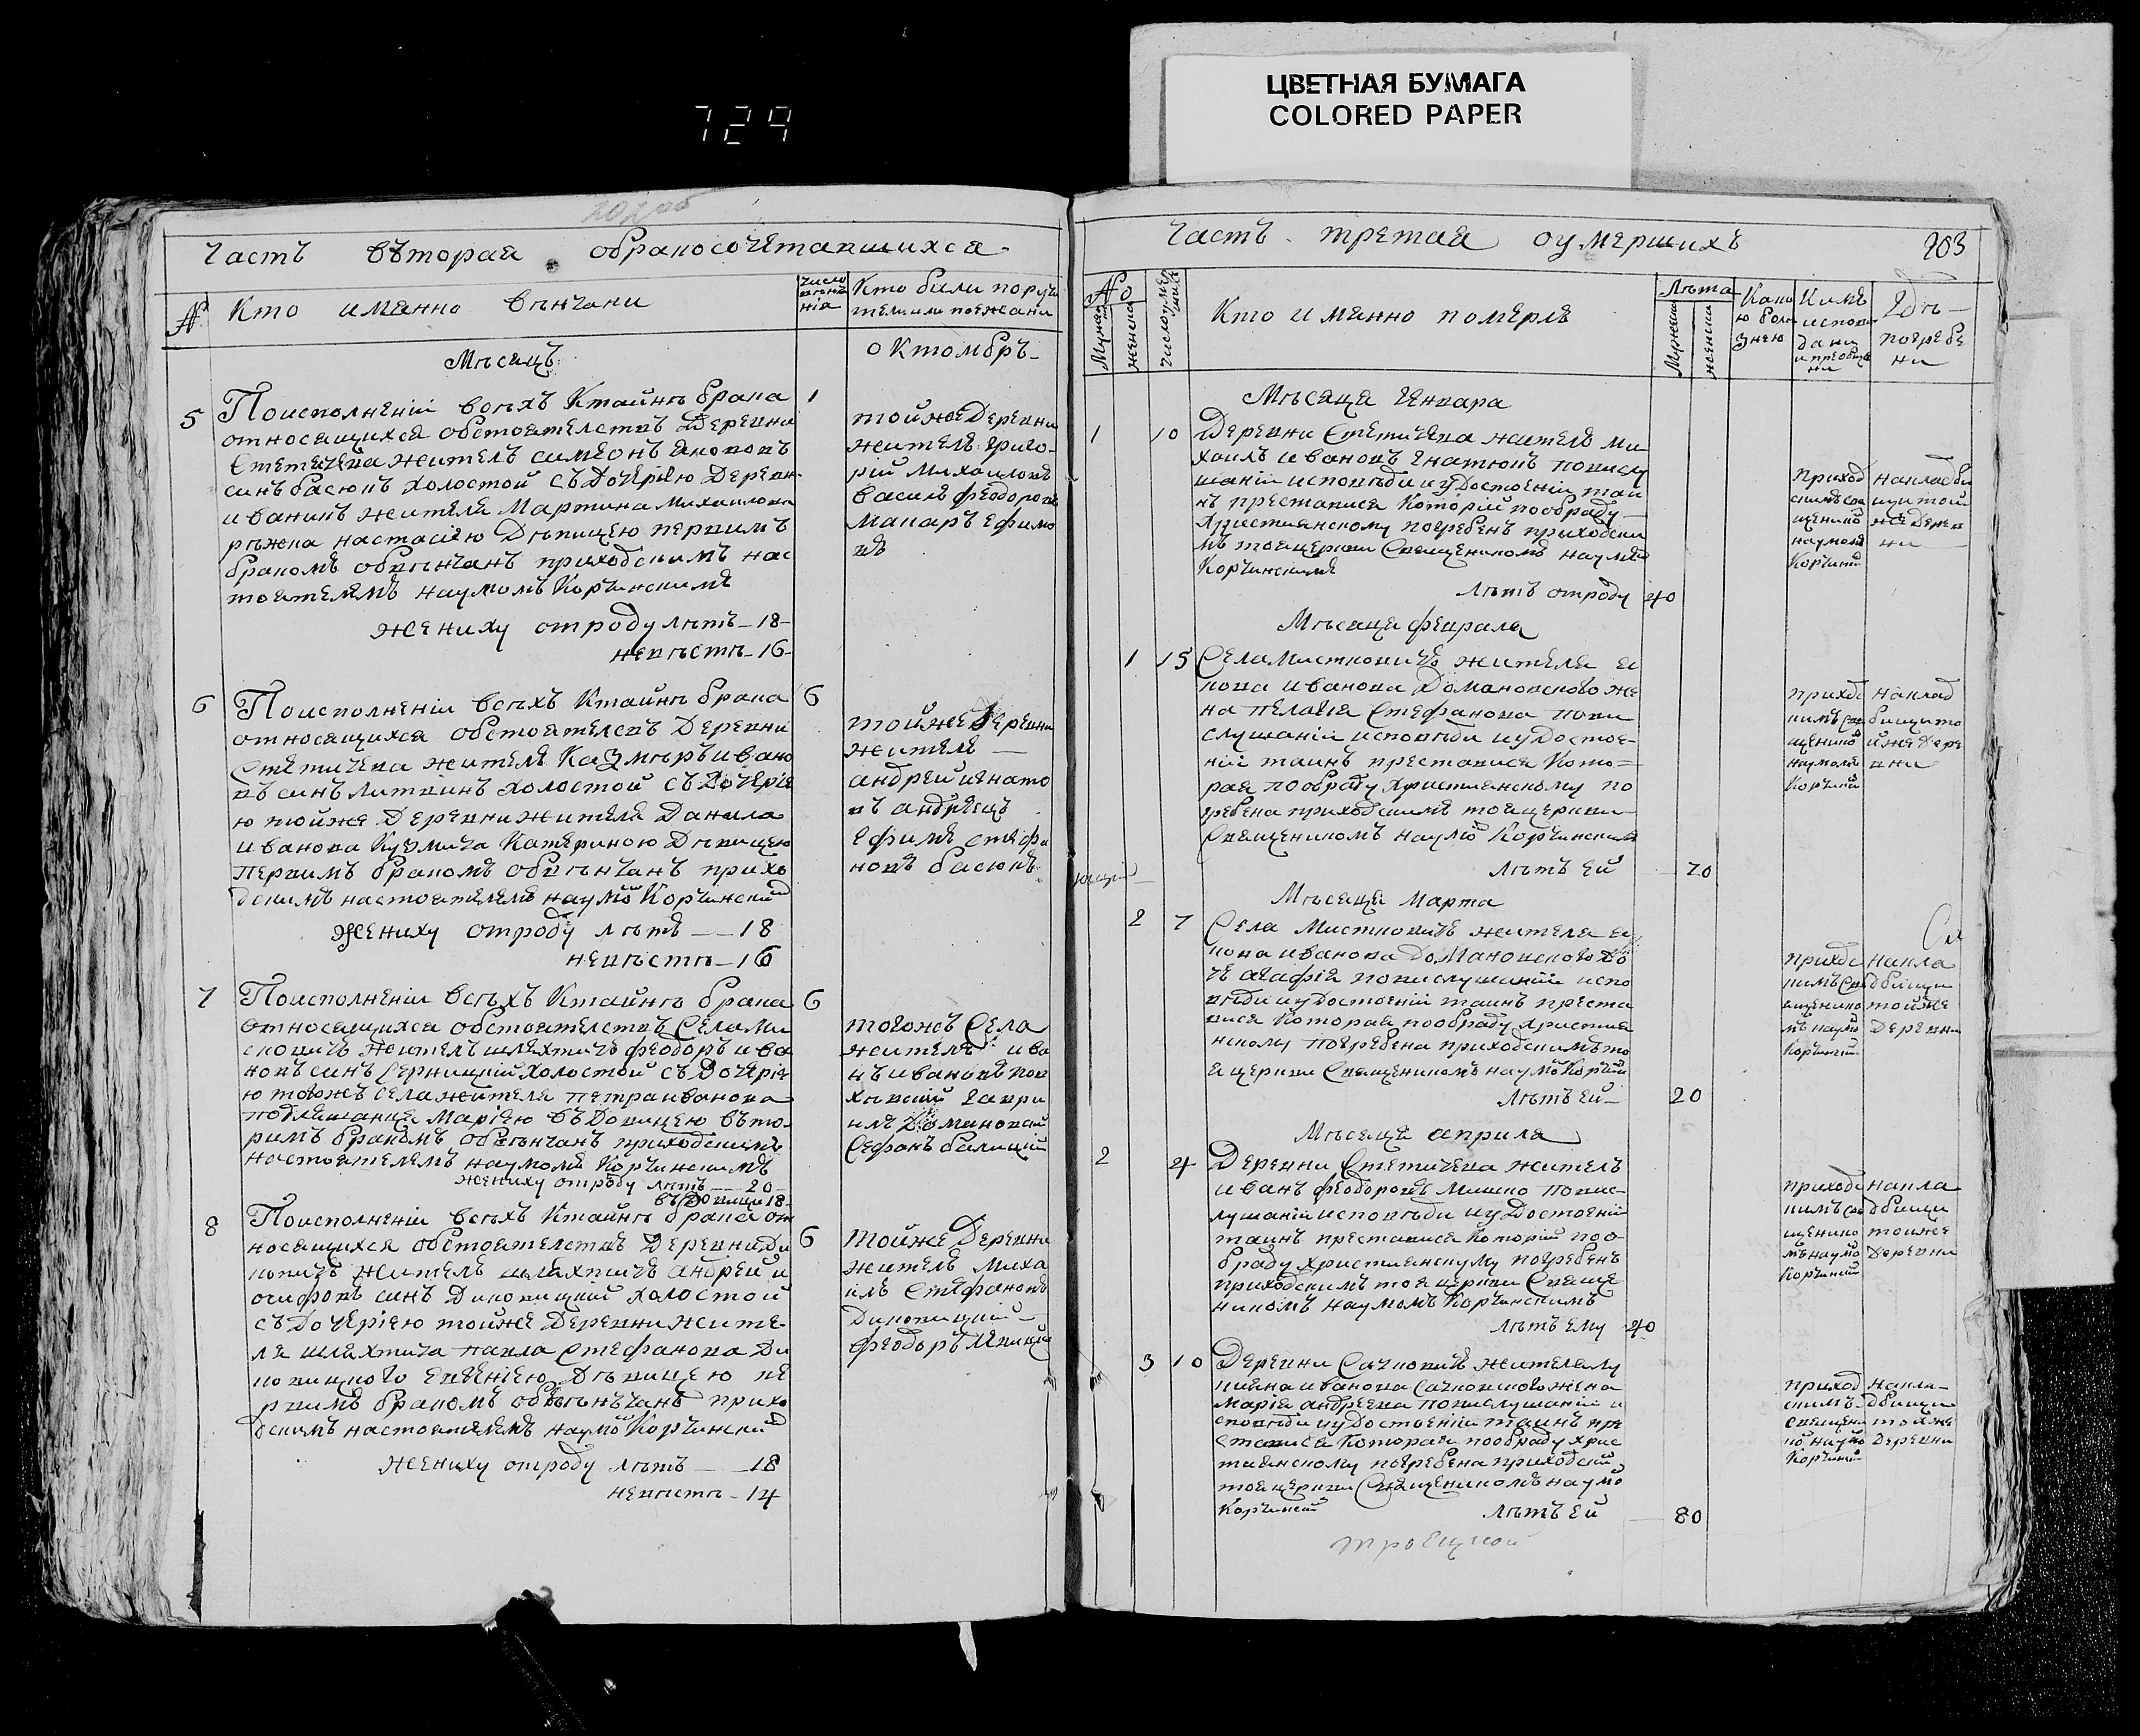 ЦВЕТНАЯ БУМАГА
COLORED PAPER
729
Часть вѣторая обракосочетавшихся
№
Кто именно венчани
Число венчания
Кто били поручи
телми поежани
Месяцъ
октомбръ
5
Поисполнении всехъ ктайне брака
1
относящихся обстоятелствъ Деревни
Стетичева жителъ симеонъ яковов
синъ басюкъ холостой съ Дочерию Деревни
иваникъ жителя Мартина михаилова
настасиею Девицею первимъ
бракомъ обвенчанъ приходскимъ нас
тоятелемъ наумомъ Корчинскимъ
жениху отроду летъ 18
невесте 16
тойже Деревни
жителъ григо
рий михаиловъ
василъ феодоровъ
макаръ ефимо
въ
6
Поисполнении всехъ ктайне брака
6
относящихся обстоятелсвъ Деревни
Стетичева жителъ Казмеръ ивано
въ синъ литвинъ холостой съ Дочерие
ю тойже Деревни жителя Данила
иванова Кузмича Катериною Девицею
первимъ бракомъ обвенчанъ прихо
дскимъ настоятелемъ наумо Корчински
жениху отроду летъ 18
невесте 16
тойже Деревни
жителъ
андрей игнато
въ андреецъ
ефимъ стефа
новъ басюкъ
7
Поисполнении всехъ ктайне брака
6
относящихся обстоятелствъ Села ми
сковичъ жителъ шляхтичъ феодоръ ива
новъ синъ Серницкий холостой съ Дочерие
ю тогожъ села жителя петра иванова
Мариею въдовицею въто
римъ бракомъ обвенчанъ приходскимъ
настоятелемъ наумомъ Корчинскимъ
жениху отроду летъ 20
въдовици 18
тогожъ Села
жителъ ива
нъ ивановъ пов
гаври
илъ Домановский
Сефанъ балицкий
8
Поисполнении всехъ ктайне брака от
носящихся обстоятелствъ Деревни Ди
6
ковичъ жителъ шляхтичъ андрей и
осифовъ синъ Диковицкий холостой
съ Дочериею тойже Деревни жите
ля шляхтича павла Стефанова Ди
ковицкого евгениею Девицею пе
рвимъ бракомъ обвенъчанъ прихо
дскимъ настоятелемъ наумо Корчинский
жениху отроду летъ 18
невесте 14
тойже Деревни
жителъ миха
илъ Стефановъ
Диковицкий
феодоръ
Часть третая оумершихъ
203
№
Мужеска
женска
Число умерших
Кто именно померлъ
Лета
Мужески
женски
Како
ю бол
знею
Кимъ
испове
дани
и приобще
ни
Где
погребе
ни
Месяца Генвара
1
10
Деревни Стетичева жителъ ми
хаилъ ивановъ игнатюкъ повислу
шании исповеди иудостоении таи
нъ преставися Которий пообряду
християнскому погребенъ приходски
мъ тояцеркви Священикомъ наумом
Корчинскимъ
летъ отроду 40
приход
скимъ свя
щенико
наумомъ
Корчинский
накладби
щи той
же Дерев
ни
Месяца феврала
1
15
Села Мистковичъ жителя
кова иванова Домановского же
на пелагия Стефанова пови
слушании исповеди иудостое
нии таинъ преставися Кото
рая пообряду християнскому по
гребена приходскимъ тояцеркви
Священикомъ наумо Корчински
летъ ей 70
приходс
кимъ свя
щенико
наумомъ
Корчиский
наклад
бищи то
йже Дере
вни
Месяца Марта
2
7
Села Мистковичъ жителя
кова иванова Домановского до
чъ агафия повислушании испо
веди иудостоении таинъ преста
вися Которая пообряду християн
нскому погребена приходскимъ то
я церкви Священикомъ наумо Корчин
летъ ей 20
приходс
кимъ свя
щенико
мъ наумо
Корчинский
накла
дбищи
тойже
Деревни
Месяца априля
2
4
Деревни Стетичева жителъ
иванъ феодоровъ Мишко повис
лушании исповеди иудостоении
таинъ преставися Которий поо
бряду християнскому погребенъ
приходскимъ тоя церкви Свяще
никомъ наумомъ Корчинскимъ
летъ ему 40
приходс
кимъ свя
щенико
мъ наумо
Корчинский
накла
дбищи
тойже
Деревни
3
10
Деревни Сачковичъ жителя лу
кияна иванова Сачковского жена
мария андреева повислушании и
споведи иудостоении таинъ пре
ставися Которая пообряду хрис
тиянскому погребена приходский
тояцеркви Священикомъ наумо
Корчинский летъ ей 80
приход
скимъ
священи
ко наумо
Корчиский
накла
дбищи
тойже
Деревни
троецкой